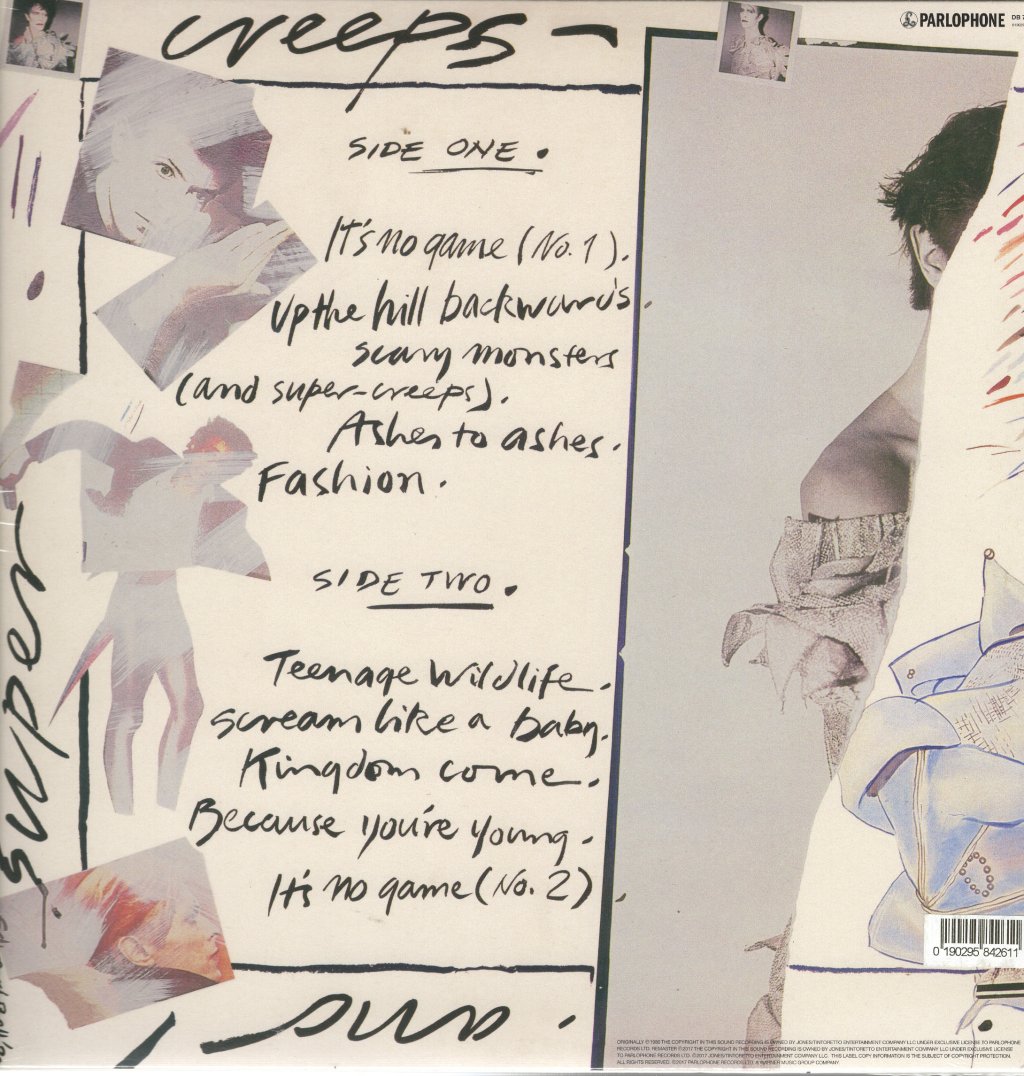 creeps
PARLOPHONE
SIDE ONE.
It's no game (No. 1).
Up the hill backwards.
scary monsters
(and super-creeps).
Ashes to ashes.
Fashion.
super
SIDE TWO.
Teenage Wildlife.
scream like a baby.
Kingdom come.
Because you're young.
It's no game (No. 2)
and
0 190295 842611
ORIGINALLY ℗ 1980 THE COPYRIGHT IN THIS SOUND RECORDING IS OWNED BY JONES/TINTORETTO ENTERTAINMENT COMPANY LLC UNDER EXCLUSIVE LICENSE TO PARLOPHONE
RECORDS LTD. REMASTER ℗2017 THE COPYRIGHT IN THIS SOUND RECORDING IS OWNED BY JONES/TINTORETTO ENTERTAINMENT COMPANY LLC UNDER EXCLUSIVE LICENSE
TO PARLOPHONE RECORDS LTD. ©2017 JONES/TINTORETTO ENTERTAINMENT COMPANY LLC. THIS LABEL COPY INFORMATION IS THE SUBJECT OF COPYRIGHT PROTECTION.
ALL RIGHTS RESERVED. ©2017 PARLOPHONE RECORDS LTD. A WARNER MUSIC GROUP COMPANY